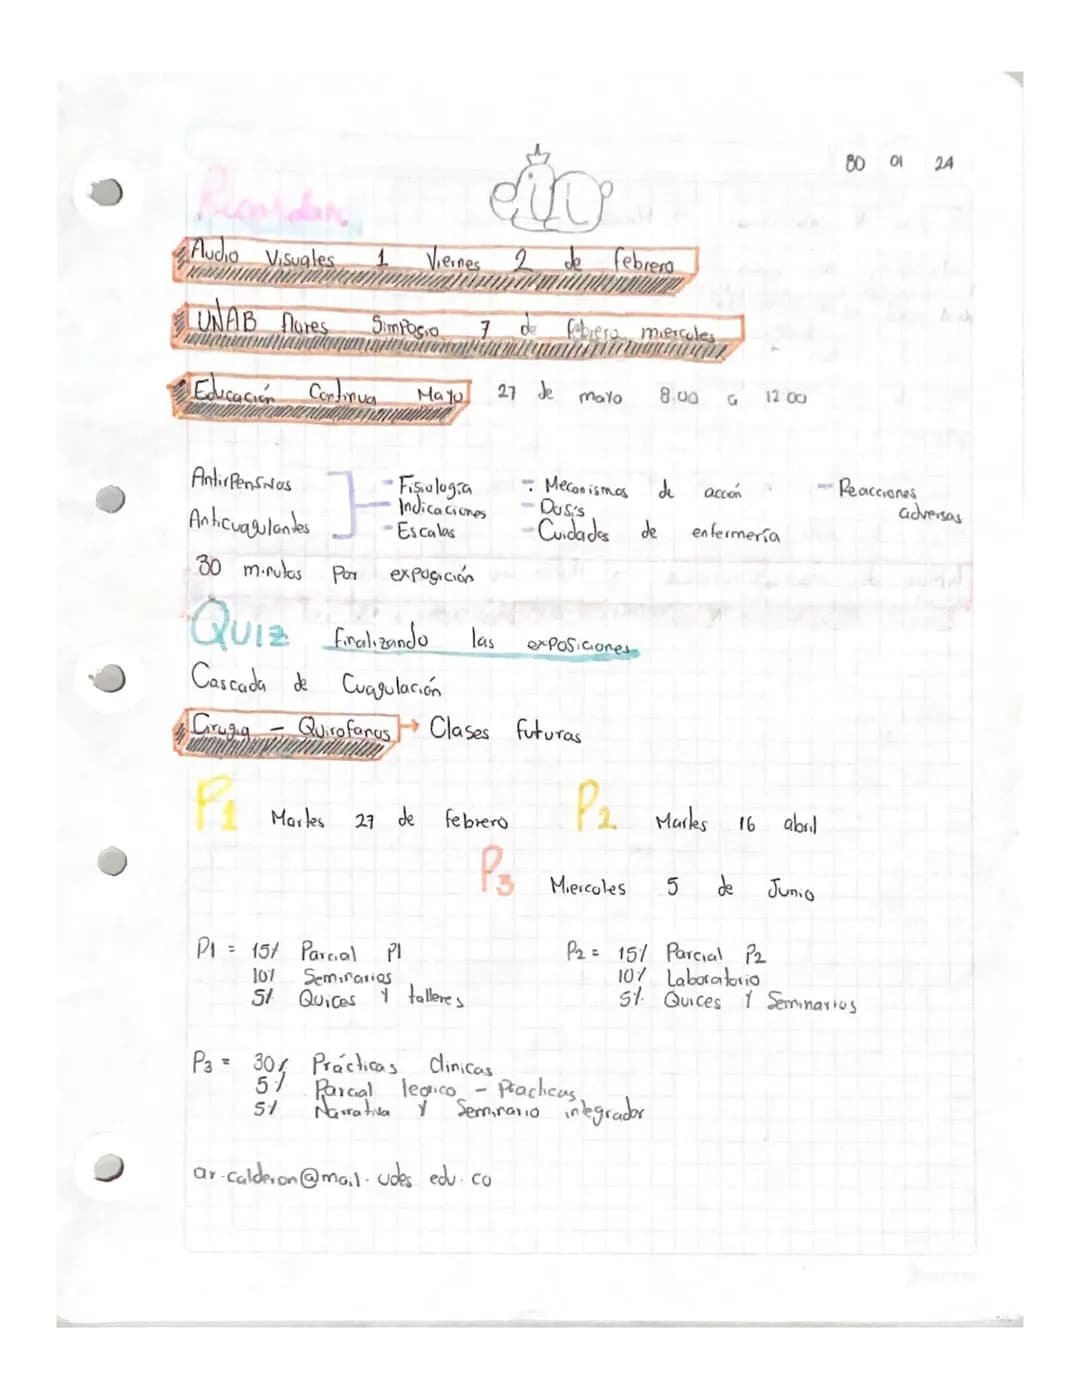 80 01 24
Recordar
Audio Visuales 1 Viernes 2 de febrero
UNAB flores Simposio 7 de febrero miercoles
Educación Continua Mayo 27 de mayo 8:00 a 12:00
Antirpensivas - Fisiología - Mecanismos de acción - Reacciones adversas
- Indicaciones - Dosis
Anticuagulantes - Escalas - Cuidados de enfermería
30 minutos Por exposición
QUIZ finalizando las exposiciones
Cascada de Cuagulación
Cirugia - Quirofanos → Clases futuras
P1 Martes 27 de febrero P2 Martes 16 abril
P3 Miercoles 5 de Junio
P1 = 15% Parcial P1
10% Seminarios
5% Quices Y talleres
P2 = 15% Parcial P2
10% Laboratorio
5% Quices Y Seminarios
P3 = 30% Prácticas Clinicas
5% Parcial teorico - Practicas
5% Narrativa Y Seminario integrador
ar.calderon@mail.udes.edu.co